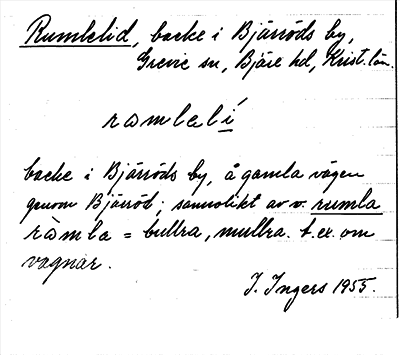 Rumlelid, backe i Bjärröds by,
Grevie sn, Bjäre hd, Krist. län.
ramlelí
backe i Bjärröds by, å gamla vägen
genom Bjärröd; sannolikt av v. rumla
ràmla = bullra, mullra. t.ex. om
vagnar.
I. Ingers 1955.